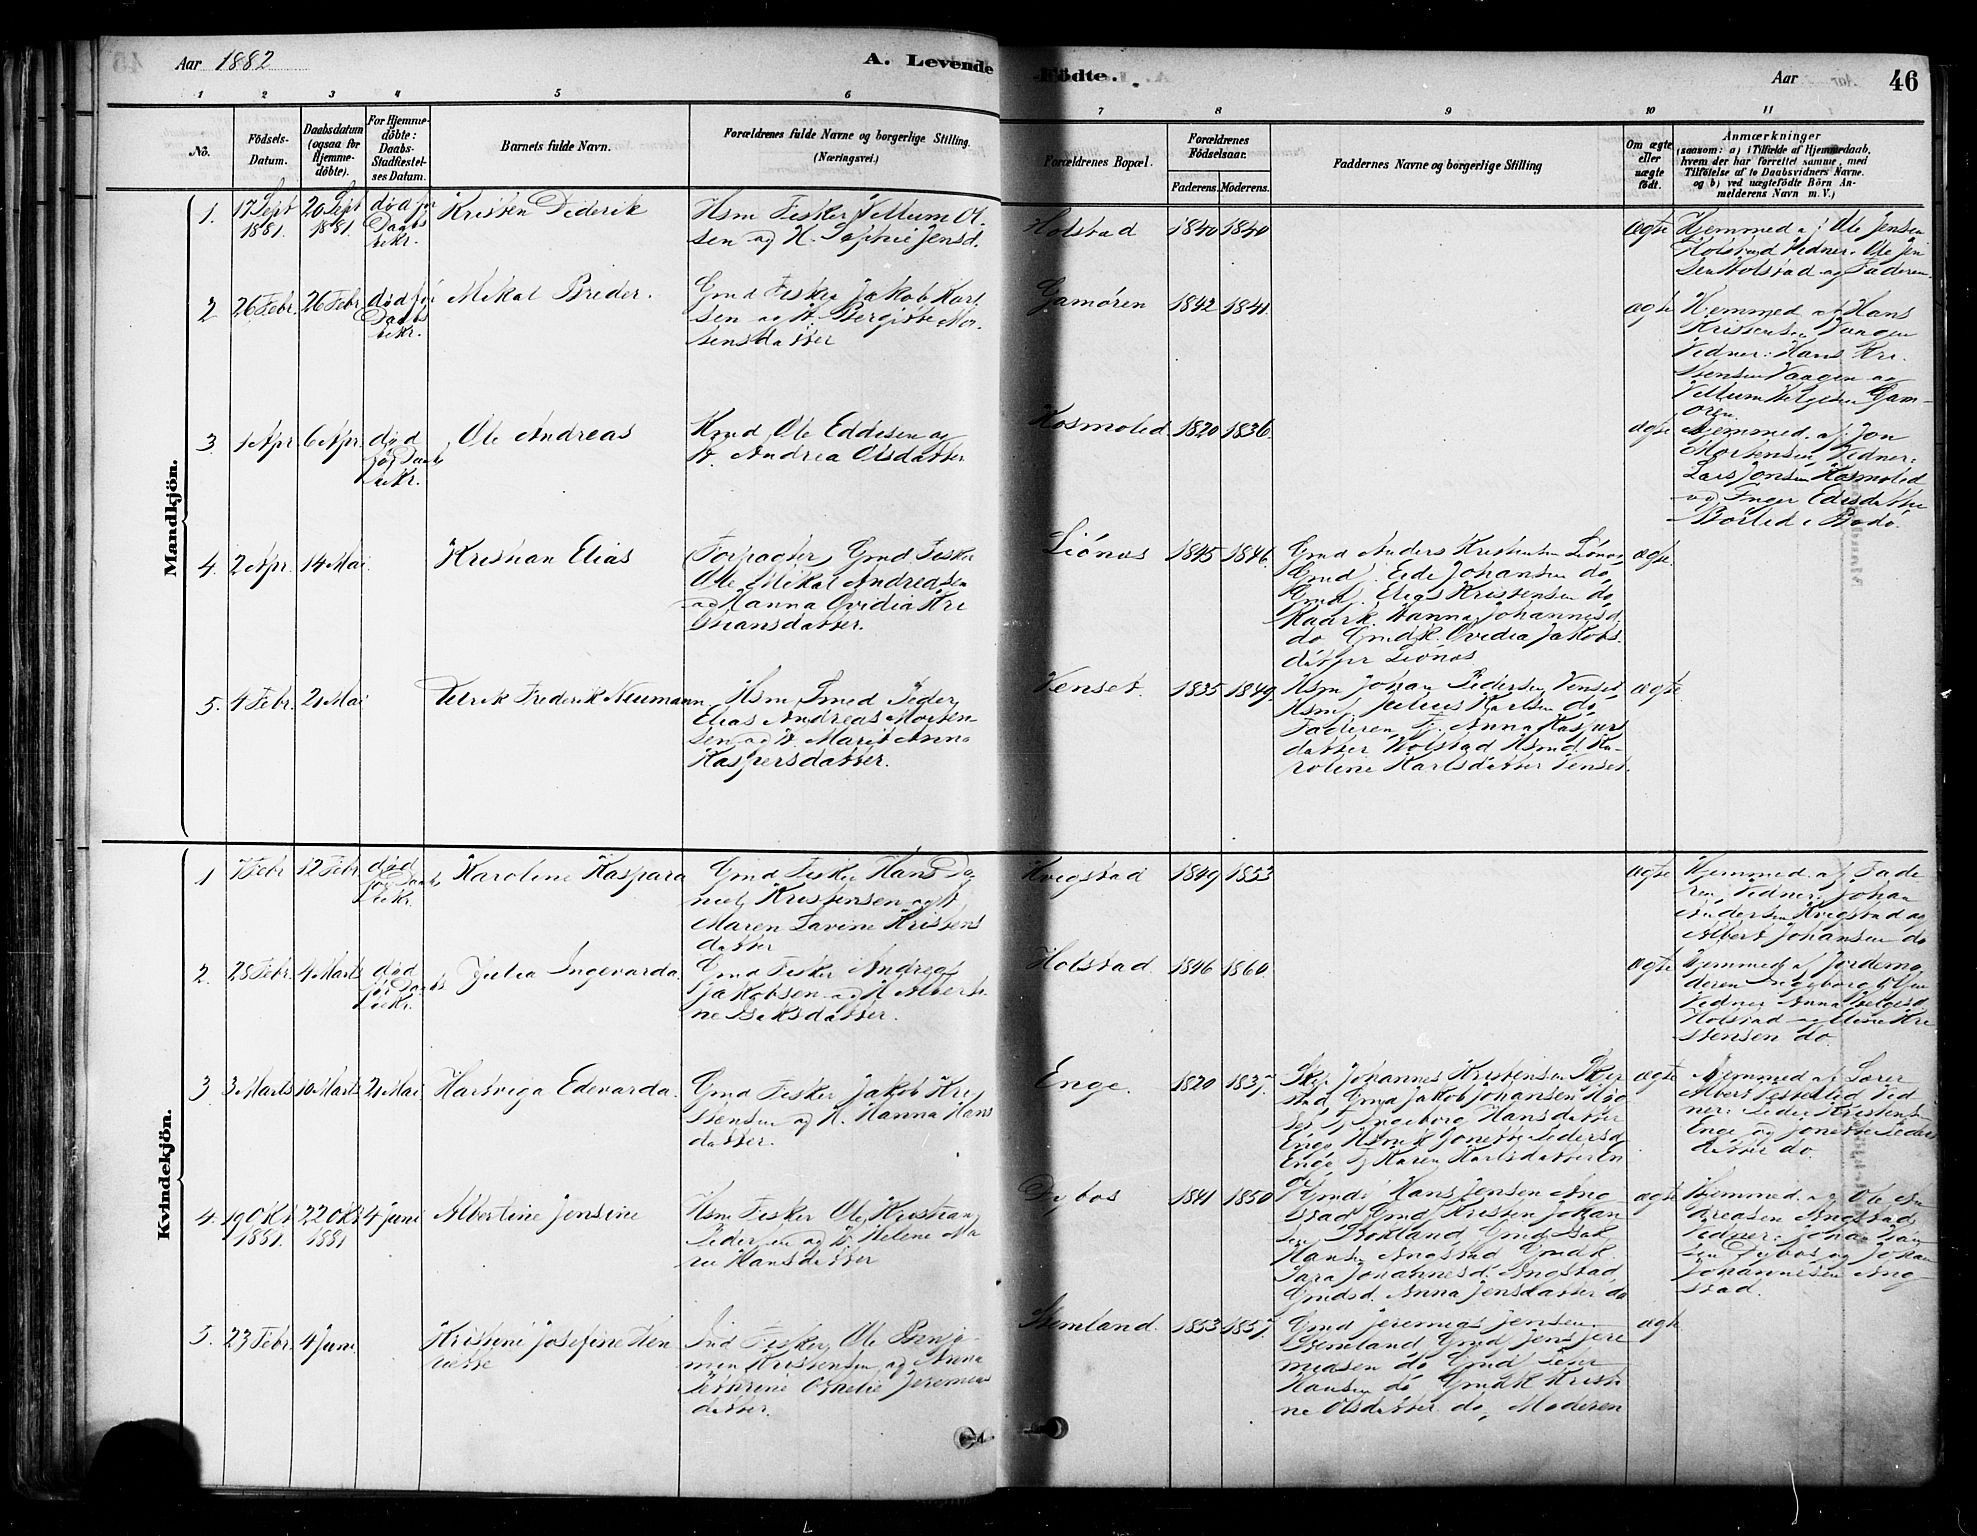 Aar 1882
A. Levende
Fødte.
Aar
46
1 2 3 4 5 6 7 8 9 10 11
No.
Fødsels-
Datum.
Daabsdatum
(ogsaa for
Hjemme-
døbte).
For Hjemme-
døbte:
Daabs-
Stadfæstel-
ses Datum.
Barnets fulde Navn.
Forældrenes fulde Navne og borgerlige Stilling.
(Næringsvei.)
Forældrenes Bopæl.
Forældrenes
Fødselsaar.
Faderens. Moderens.
Faddernes Navne og borgerlige Stilling
Om ægte
eller
uægte
født.
Anmærkninger
(saasom: a) i Tilfælde af Hjemmedaab,
hvem der har forrettet samme, med
Tilføielse af to Daabsvidners Navne.
og b) ved uægtefødte Børn An-
melderens Navn m. V.)
Mandkjön.
1. 17 Sept 1881. 20 Sept 1881. død før Daabs bekr.
Kristen Diderik
Hsm Fisker Villum Ol-
sen og H. Sophie Jensd.
Holstad 1840 1840
ægte
Hjemmed af Ole Jensen
Holstad Vidner: Ole Jen
sen Holstad og Faderen
2 26 Febr. 26 Febr død før Daabs bekr.
Mikal Breder.
Gmd Fisker Jakob Karl
sen og H. Bergitte Mor-
tensdatter
Gamøren 1842 1841
ægte
Hjemmed. af Hans
Kristensen Vaagen
Vidner: Hans Kri-
stensen Vaagen og
Villum Helgesen Gam-
øren
3. 1 Apr 6 Apr. død før Daabs bekr.
Ole Andreas
Kmd Ole Eddesen og
H. Andrea Olsdatter
Kosmolid 1820 1836.
ægte
Hjemmed. af Jon
Mortensen, Vidner:
Lars Jonsen Kosmolid
og Inger Edisdatter
Børlid i Bodø.
4. 2 Apr. 14 Mai
Kristian Elias
(Forpagter) Gmd. Fisker
Ole Mikal Andreasen
og Hanna Ovidia Kri
stiansdatter.
Liønes 1845 1846.
Gmd Anders Kristensen Liønes
Gmd. Ede Johansen do,
Gmd. Elias Kristensen do,
Kaark. Hanna Johannesd.
do Gmdk. Ovidia Jakobs-
datter Liønes
ægte.
5. 4 Febr. 21 Mai
Henrik Frederik Neumann,
Hsm Smed Peder
Elias Andreas Morten-
sen og H. Marit Anna
Kaspersdatter.
Venset. 1835 1849.
Hsm Johan Pedersen Venset
Hsm. Julius Karlsen do,
Faderen, Pj. Anna Kaspers
datter Holstad Hsmd. Ka-
roline Karlsdatter Venset.
ægte.
Kvindekjön.
1 7 Febr 12 Febr. død før Daabs bekr.
Karoline Kaspara
Gmd Fisker Hans Da
niel Kristensen og H
Maren Lavine Kristens
datter
Kvigstad 1849 1853
ægte
Hjemmed af Fade-
ren, Vidner: Johan
Andersen Kvigstad og
Albert Johansen do
2. 25 Febr. 4 Marts død før Daabs bekr.
Julia Ingevarda.
Gmd Fisker Andreas
Jakobsen og H. Alberti-
ne Isaksdatter.
Holstad 1846 1860.
ægte
Hjemmed af Jordemo
deren Ingeborg
Vidner Anna Helgesd
Holstad og Kri
stensen do.
3 3 Marts 10 Marts 21 Mai
Hartviga Edevarda.
Gmd Fisker Jakob Kri
stensen og H. Hanna Hans
datter.
Enge. 1820 1837.
Johannes Kristensen
stad Gmd Jakob Johansen
Pj Ingeborg Hansdatter
Enge Hsmk Jonette Pedersd
Enge Pj Karen Karlsdatter En
ge
ægte
Hjemmed af Lærer
Albert Vid
ner: Peder Kristensen
Enge og Jonette Peders
datter do.
4. 19 Okt 1881. 22 Okt 1881 4 Juni
Albertine Jensine
Hsm Fisker Ole Kristian
Pedersen og H. Helene Ma
rie Hansdatter
1841 1850
Gmd Hans Jensen Ang
stad Gmd Kristen Johan
sen Bokland Gmd Isak
Hansen Angstad Gmdk.
Sara Johannesd. Angstad,
Gmdsd. Anna Jensdatter do
ægte
Hjemmed. af Ole An
dreasen Angstad,
Vidner: Johan
sen og Johan
Johannesen Ang
stad.
5. 23 Febr. 4 Juni.
Kristine Josefine Hen
riette
Ind Fisker Ole Benja
min Kristensen og Anna
Petrine Ornelie Jeremias
datter.
Stemland. 1853 1857.
Gmd Jeremias Jensen
Stemland Gmd Jens Jere
miasen do Gmd Peder
Hansen do Gmdk Kristi
ne Olsdatter do, Moderen
ægte